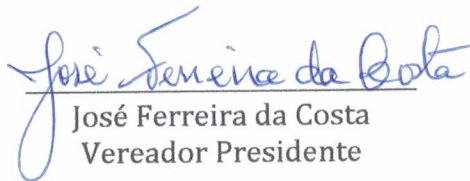 José Ferreira da Costa
José Ferreira da Costa
Vereador Presidente